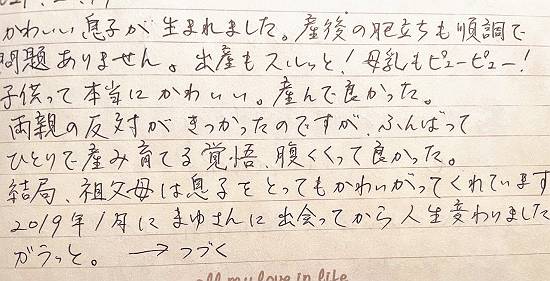 かわいい息子が生まれました。産後の肥立ちも順調で
問題ありません。出産もスルッと!母乳もピューピュー!
子供って本当にかわいい。産んで良かった。
両親の反対がきつかったのですが、ふんばって
ひとりで産み育てる覚悟、腹くくって良かった。
結局、祖父母は息子をとってもかわいがってくれています
2019年1月にまゆさんに出会ってから人生変わりました
ガラっと。 → つづく
all my love in life